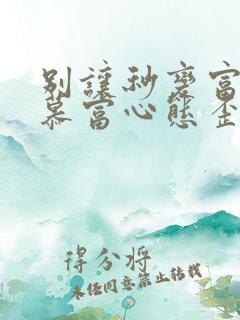 别让秒变富
慕富心态歪
得分将
未经同意禁止转载